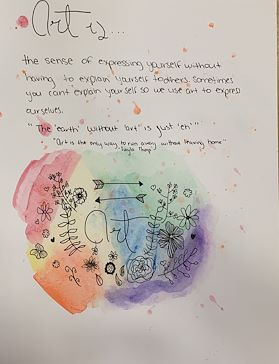 Art is...
the sense of expressing yourself without
having to explain yourself to others. Sometimes
you cant explain yourself so we use art to express
ourselves.
"The 'earth' without 'art' is just 'eh'"
"Art is the only way to run away without leaving home"
Art